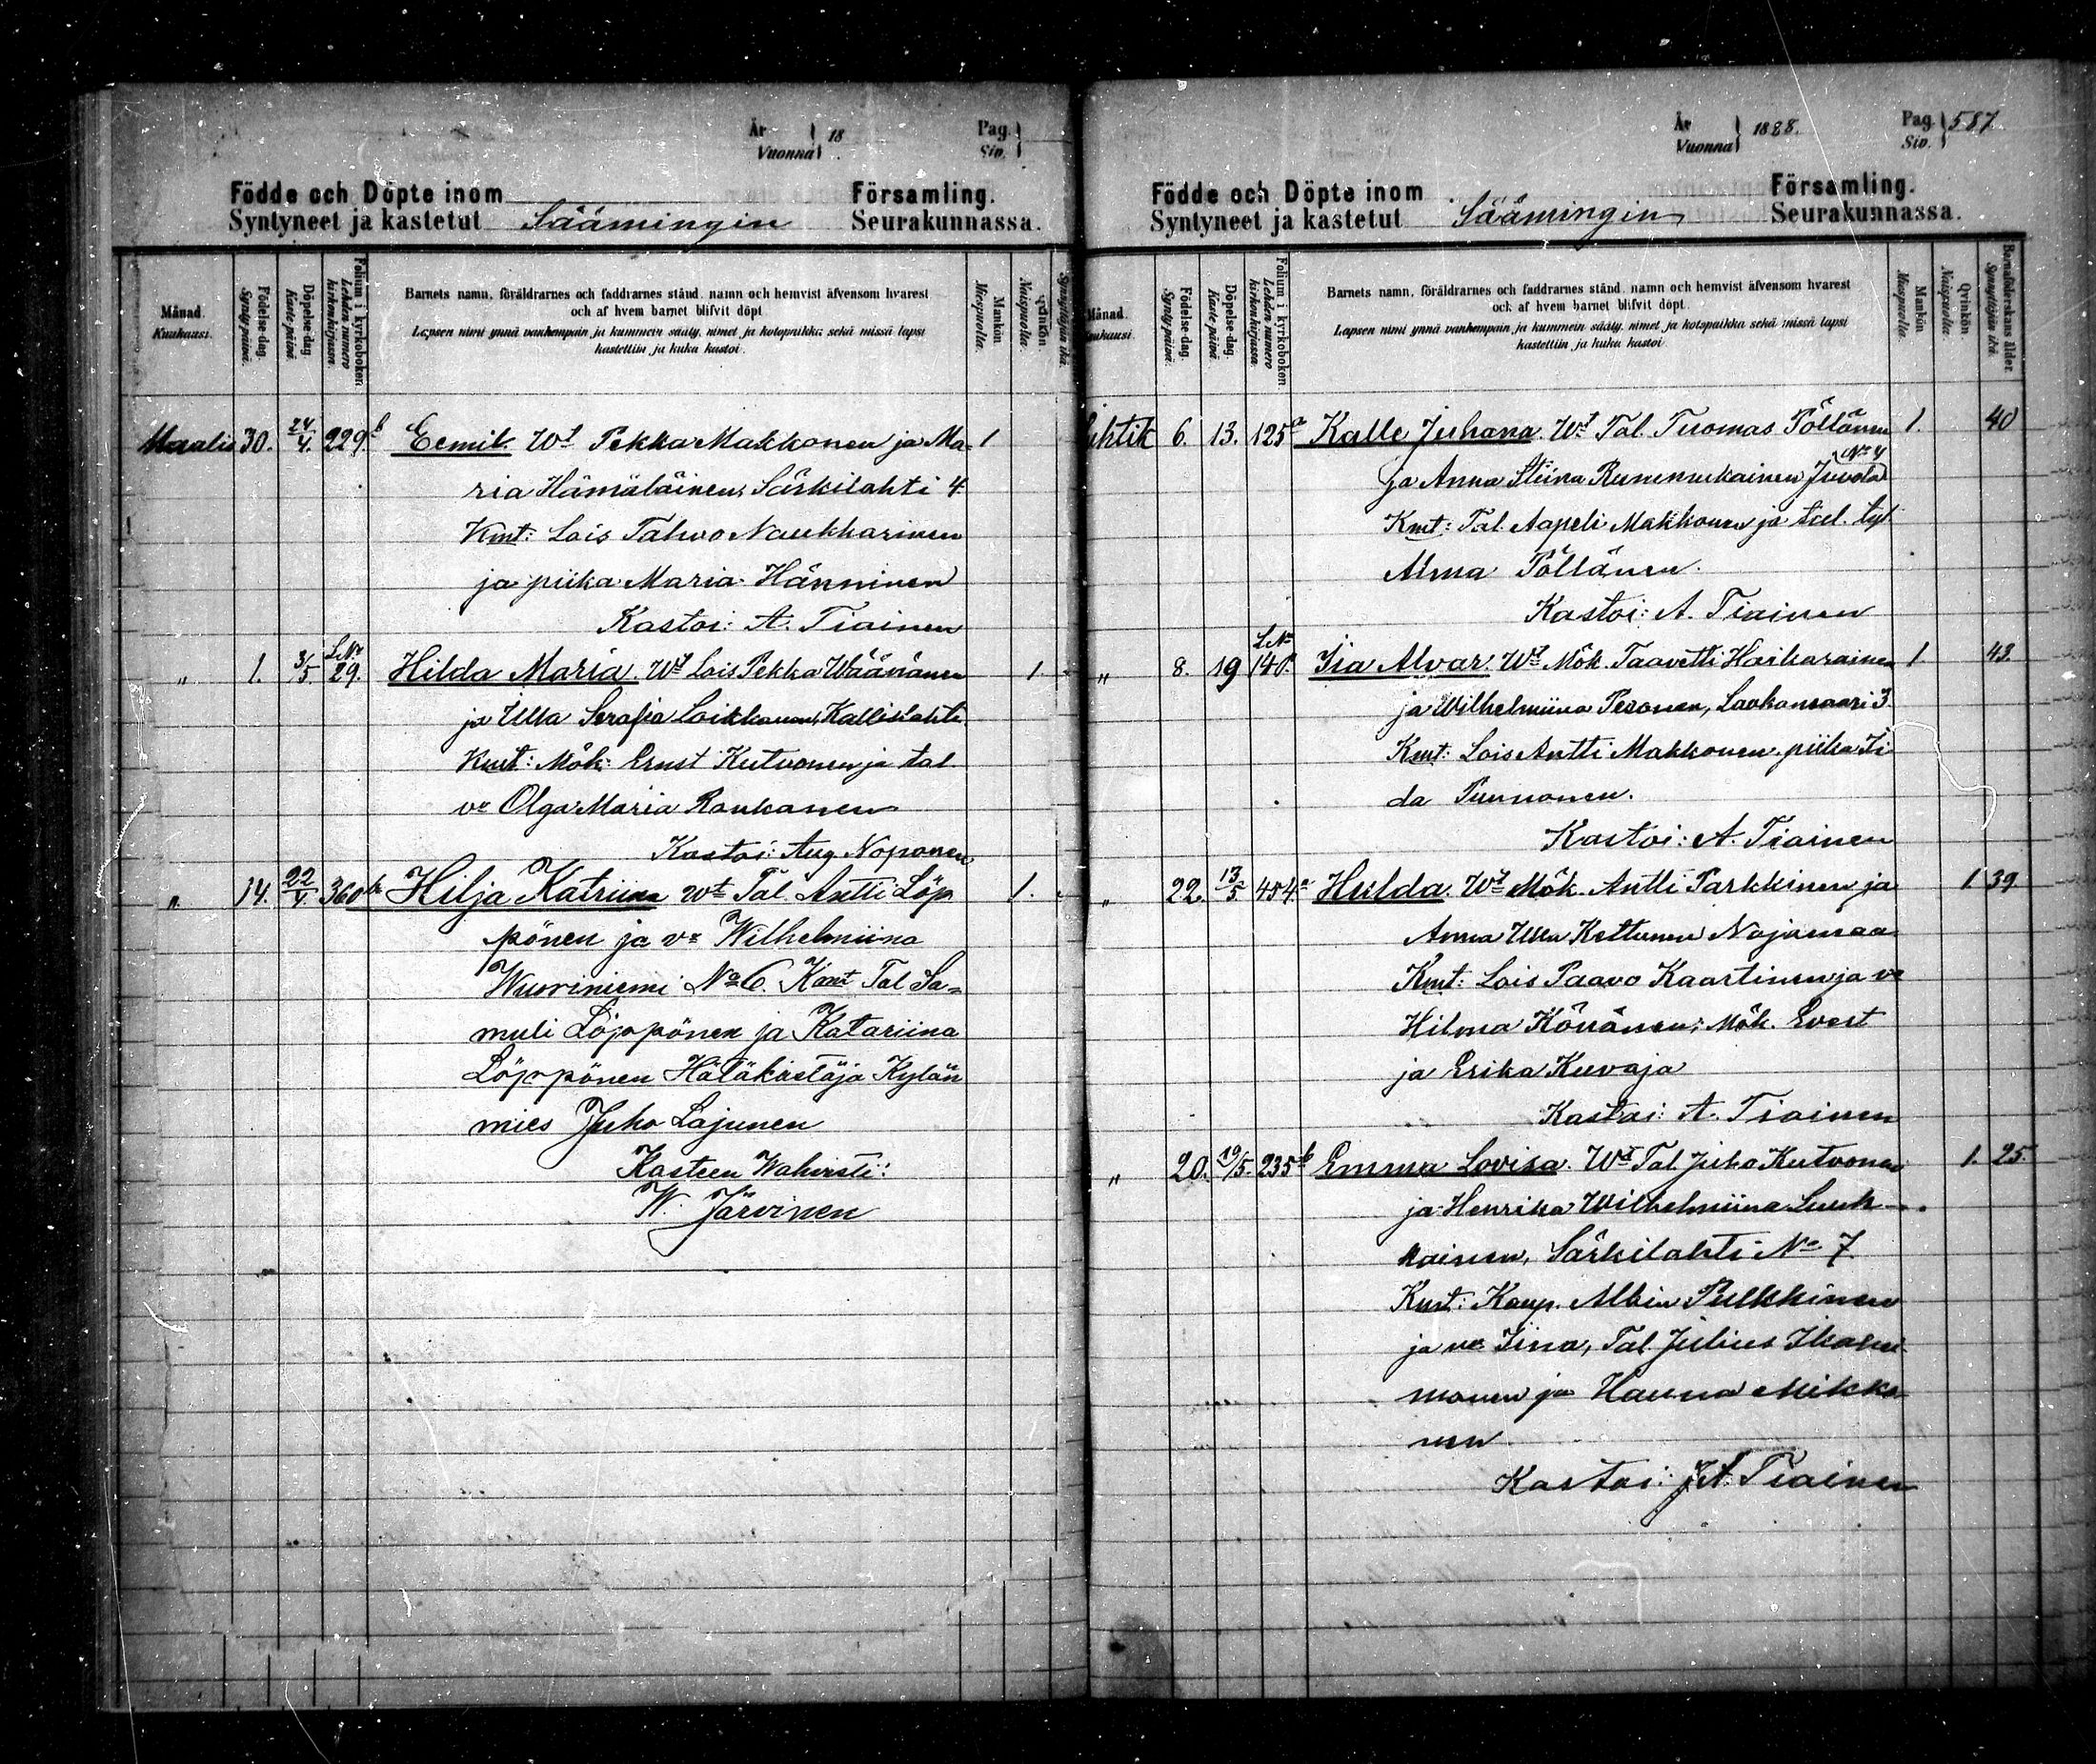 År
Vuonna
18
Pag.
Siv.
Födde och Döpte inom Församling.
Syntyneet ja kastetut Säämingin Seurakunnassa.
Månad.
Kuukausi.
Födelse-dag.
Synty-päivä.
Döpelse-dag.
Kaste-päivä.
Folium i kyrkoboken
Lehden numero
kirkonkirjassa.
Barnets namn, föräldrarnes och faddrarnes stånd, namn och hemvist äfvensom hvarest
och af hvem barnet blifvit döpt.
Lapsen nimi ynnä vanhempain ja kummein sääty, nimet ja kotopaikka sekä missä lapsi
kastettiin ja kuka kastoi.
Mankön.
Miespuolia.
Qvinkön.
Naispuolia.
Synnyttäjän ikä.
Maalis 30. 24/4. 229.b Eemil. Wt Pekka Makkonen ja Ma- 1
ria Hämäläinen, Särkilahti 4.
Kmt: Lois Tahvo Naukkarinen
ja piika Maria Hänninen
Kastoi: A. Tiainen
LNo
" 1. 3/5. 29. Hilda Maria. Wt Lois Pekka Wäänänen 1.
ja Ulla Serafia Loikkanen, Kallislahti
Kmt: Mök: Ernst Kutvonen ja tal.
vo Olga Maria Raukanen
Kastoi: Aug. Noponen
" 14. 22/4 360b Hilja Katriina Wt Tal. Antti Löp 1.
pönen ja vo Wilhelmiina
Wuoriniemi No 6. Kmt Tal Sa=
muli Löppönen ja Katariina
Löppönen Hätäkastaja Kylän
mies Juho Lajunen
Kasteen Wahvisti:
W. Järvinen
År
Vuonna
1888.
Pag.
Siv.
587.
Födde och Döpte inom Församling.
Syntyneet ja kastetut Säämingin Seurakunnassa.
Månad.
Kuukausi.
Födelse-dag.
Synty-päivä.
Döpelse-dag.
Kaste-päivä.
Folium i kyrkoboken
Lehden numero
kirkonkirjassa.
Barnets namn, föräldrarnes och faddrarnes stånd, namn och hemvist äfvensom hvarest
och af hvem barnet blifvit döpt.
Lapsen nimi ynnä vanhempain ja kummein sääty, nimet ja kotopaikka sekä missä lapsi
kastettiin ja kuka kastoi.
Mankön.
Miespuolia.
Qvinkön.
Naispuolia.
Barnaföderskans ålder.
Synnyttäjän ikä.
Huhtik 6. 13. 125a Kalle Juhana. Wt Tal. Tuomas Pöllänen 1. 40
No 4
ja Anna Stiina Rummukainen Juvola
Kmt: Tal. Aapeli Makkonen ja tal. tyt.
Alma Pöllänen.
Kastoi: A. Tiainen
LNo
" 8. 19 140. Iia Alvar. Wt Mök. Taavetti Haikarainen 1. 43.
ja Wilhelmiina Pesonen, Laukansaari 3.
Kmt: Lois Antti Makkonen, piika Ii
da Punnonen.
Kastoi: A. Tiainen
" 22. 13/5 454a Hulda. Wt Mök. Antti Parkkinen ja 1 39
Anna Ulla Kettunen Nojamaa
Kmt: Lois Paavo Kaartinen ja vo
Hilma, Mök. Evert
ja Erika Kuvaja
Kastoi: A. Tiainen
" 20. 19/5. 235b Emma Lovisa. Wt Tal. Juho Kutvonen 1. 25.
ja Henrika Wilhelmiina Luuk
kainen, Särkilahti No 7
Kmt: Kaup. Albin Pulkkinen
ja vo Iina, Tal. Julius
monen ja Hanna Mikko
nen
Kastoi: A. Tiainen